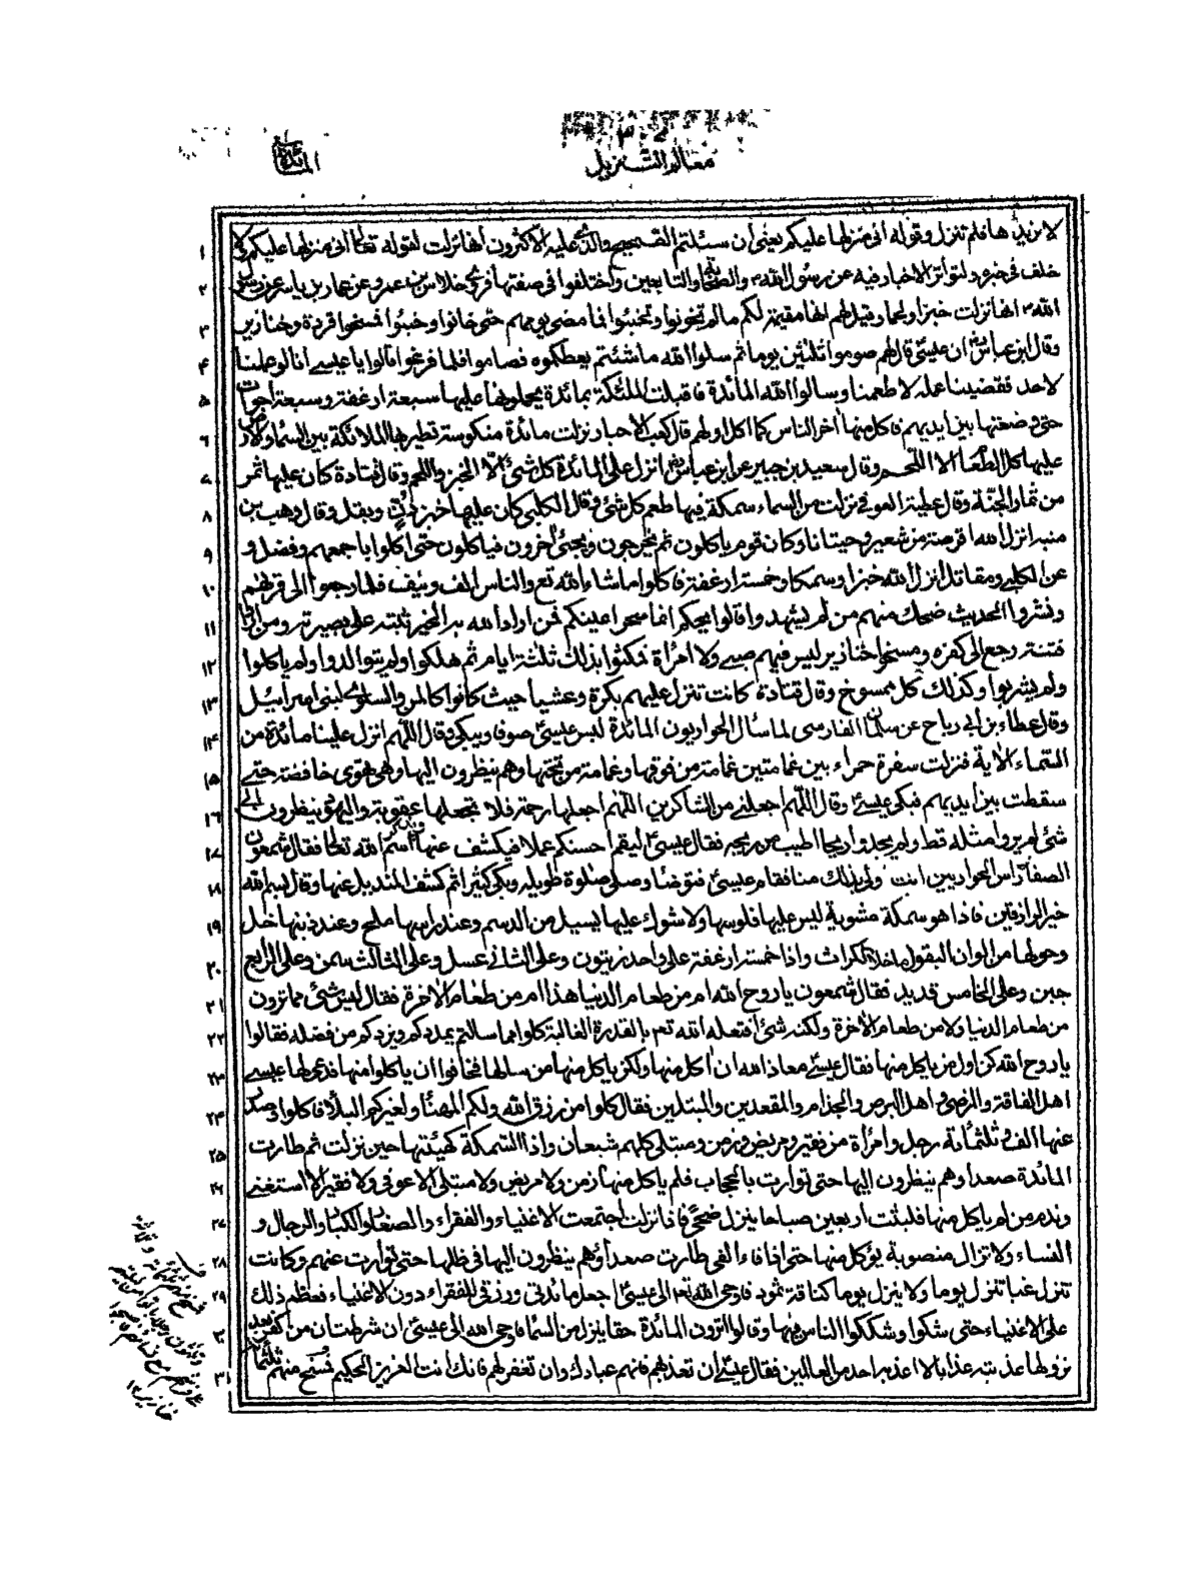 معالم التنزيل
المائدة
لا نريدها فلم تنزل وقوله انى منزلها عليكم يعنى ان سئلتم الصحيح والذى عليه الاكثرون انها نزلت لقوله تعالى انى منزلها عليكم ولا ١
خلف فى خبره لتواتر الاخبار فيه عن رسول الله والصحابة والتابعين واختلفوا فى صفتها فروى خلاس بن عمرو عن عمار بن ياسر عن رسول ٢
الله انها نزلت خبزا ولحما وقيل لهم انها مقيمة لكم ما لم تخونوا وتخبئوا فما مضى يومهم حتى خانوا وخبئوا فمسخوا قردة وخنازير ٣
وقال ابن عباس ان عيسى قال لهم صوموا ثلثين يوما ثم سلوا الله ما شئتم يعطكموه فصاموا فلما فرغوا قالوا يا عيسى انا لو عملنا ٤
لاحد فقضينا عمله لاطعمنا وسالوا الله المائدة فاقبلت الملئكة بمائدة يحملونها عليها سبعة ارغفة وسبعة احوات ٥
حتى وضعتها بين ايديهم فاكل منها اخر الناس كما اكل اولهم قال كعب الاحبار نزلت مائدة منكوسة تطير بها الملائكة بين السماء والارض ٦
عليها كل الطعام الا اللحم وقال سعيد بن جبير عن ابن عباس انزل على المائدة كل شئ الا الخبز واللحم وقال قتادة كان عليها ثمر ٧
من ثمار الجنة وقال عطية العوفى نزلت من السماء سمكة فيها طعم كل شئ وقال الكلبى كان عليها خبز وبقل وقال وهب بن ٨
منبه انزل الله اقرصة من شعير وحيتانا وكان قوم ياكلون ثم يخرجون ويجئ اخرون فياكلون حتى اكلوا باجمعهم وفضل و ٩
عن الكلبى ومقاتل انزل الله خبزا وسمكا وخمسة ارغفة فاكلوا ما شاء الله تع والناس الف ونيف فلما رجعوا الى قراهم ١٠
ونشروا الحديث ضحك منهم من لم يشهد وقالوا ويحكم انما سحر اعينكم فمن اراد الله به الخير ثبته على بصيرته ومن اراد ١١
فتنته رجع الى كفره ومسخوا خنازير ليس فيهم صبى ولا امرأة فمكثوا بذلك ثلثة ايام ثم هلكوا ولم يتوالدوا ولم ياكلوا ١٢
ولم يشربوا وكذلك كل ممسوخ وقال قتادة كانت تنزل عليهم بكرة وعشيا حيث كانوا كالمن والسلوى لبنى اسرائيل ١٣
وقال عطاء بن ابى رباح عن سلمان الفارسى لما سأل الحواريون المائدة لبس عيسى صوفا وبكى وقال اللهم انزل علينا مائدة من ١٤
السماء الاية فنزلت سفرة حمراء بين غمامتين غمامة من فوقها وغمامة من تحتها وهم ينظرون اليها وهى تهوى خافضة حتى ١٥
سقطت بين ايديهم فبكى عيسى وقال اللهم اجعلنى من الشاكرين اللهم اجعلها رحمة فلا تجعلها عقوبة واليهود ينظرون الى ١٦
شئ لم يروا مثله قط ولم يجدوا ريحا اطيب من ريحه فقال عيسى ليقم احسنكم عملا فيكشف عنها ويذكر اسم الله تعالى فقال شمعون ١٧
الصفار رأس الحواريين انت اولى بذلك منا فقام عيسى فتوضأ وصلى صلوة طويلة وبكى كثيرا ثم كشف المنديل عنها وقال بسم الله ١٨
خير الرازقين فاذا هو سمكة مشوية ليس عليها فلوسها ولا شوك عليها يسيل من الدسم وعند رأسها ملح وعند ذنبها خل ١٩
وحولها من الوان البقول ما خلا الكراث واذا خمسة ارغفة على واحد زيتون وعلى الثانى عسل وعلى الثالث سمن وعلى الرابع ٢٠
جبن وعلى الخامس قديد فقال شمعون يا روح الله امن طعام الدنيا هذا ام من طعام الاخرة فقال ليس شئ مما ترون ٢١
من طعام الدنيا ولا من طعام الاخرة ولكنه شئ افتعله الله تع بالقدرة الغالبة كلوا مما سالتم يمددكم ويزدكم من فضله فقالوا ٢٢
يا روح الله كن اول من ياكل منها فقال عيسى معاذ الله ان اكل منها ولكن ياكل منها من سالها فخافوا ان ياكلوا منها فدعى لها عيسى ٢٣
اهل الفاقة والمرضى واهل البرص والجذام والمقعدين والمبتلين فقال كلوا من رزق الله ولكم المهنأ ولغيركم البلاء فاكلوا وصدر ٢٤
عنها الف وثلثمائة رجل وامرأة من فقير ومريض وزمن ومبتلى كلهم شبعان واذا السمكة كهيئتها حين نزلت ثم طارت ٢٥
المائدة صعدا وهم ينظرون اليها حتى توارت بالحجاب فلم ياكل منها زمن ولا مريض ولا مبتلى الا عوفى ولا فقير الا استغنى ٢٦
وندم من لم ياكل منها فلبثت اربعين صباحا ينزل ضحى فاذا نزلت اجتمعت الاغنياء والفقراء والصغار والكبار والرجال و ٢٧
النساء ولا تزال منصوبة يؤكل منها حتى اذا فاء الفى طارت صعدا وهم ينظرون اليها فى ظلها حتى توارت عنهم وكانت ٢٨
تنزل غبا تنزل يوما ولا ينزل يوما كناقة ثمود فاوحى الله تعالى الى عيسى اجعل مائدتى ورزقى للفقراء دون الاغنياء فعظم ذلك ٢٩
على الاغنياء حتى شكوا وشككوا الناس فيها وقالوا اترون المائدة حقا ينزل من السماء فاوحى الله الى عيسى ان شرطت ان من كفر بعد ٣٠
نزولها عذبته عذابا لا اعذبه احد من العالمين فقال عيسى ان تعذبهم فانهم عبادك وان تغفر لهم فانك انت العزيز الحكيم فمسخ منهم ثلثمائة ٣١